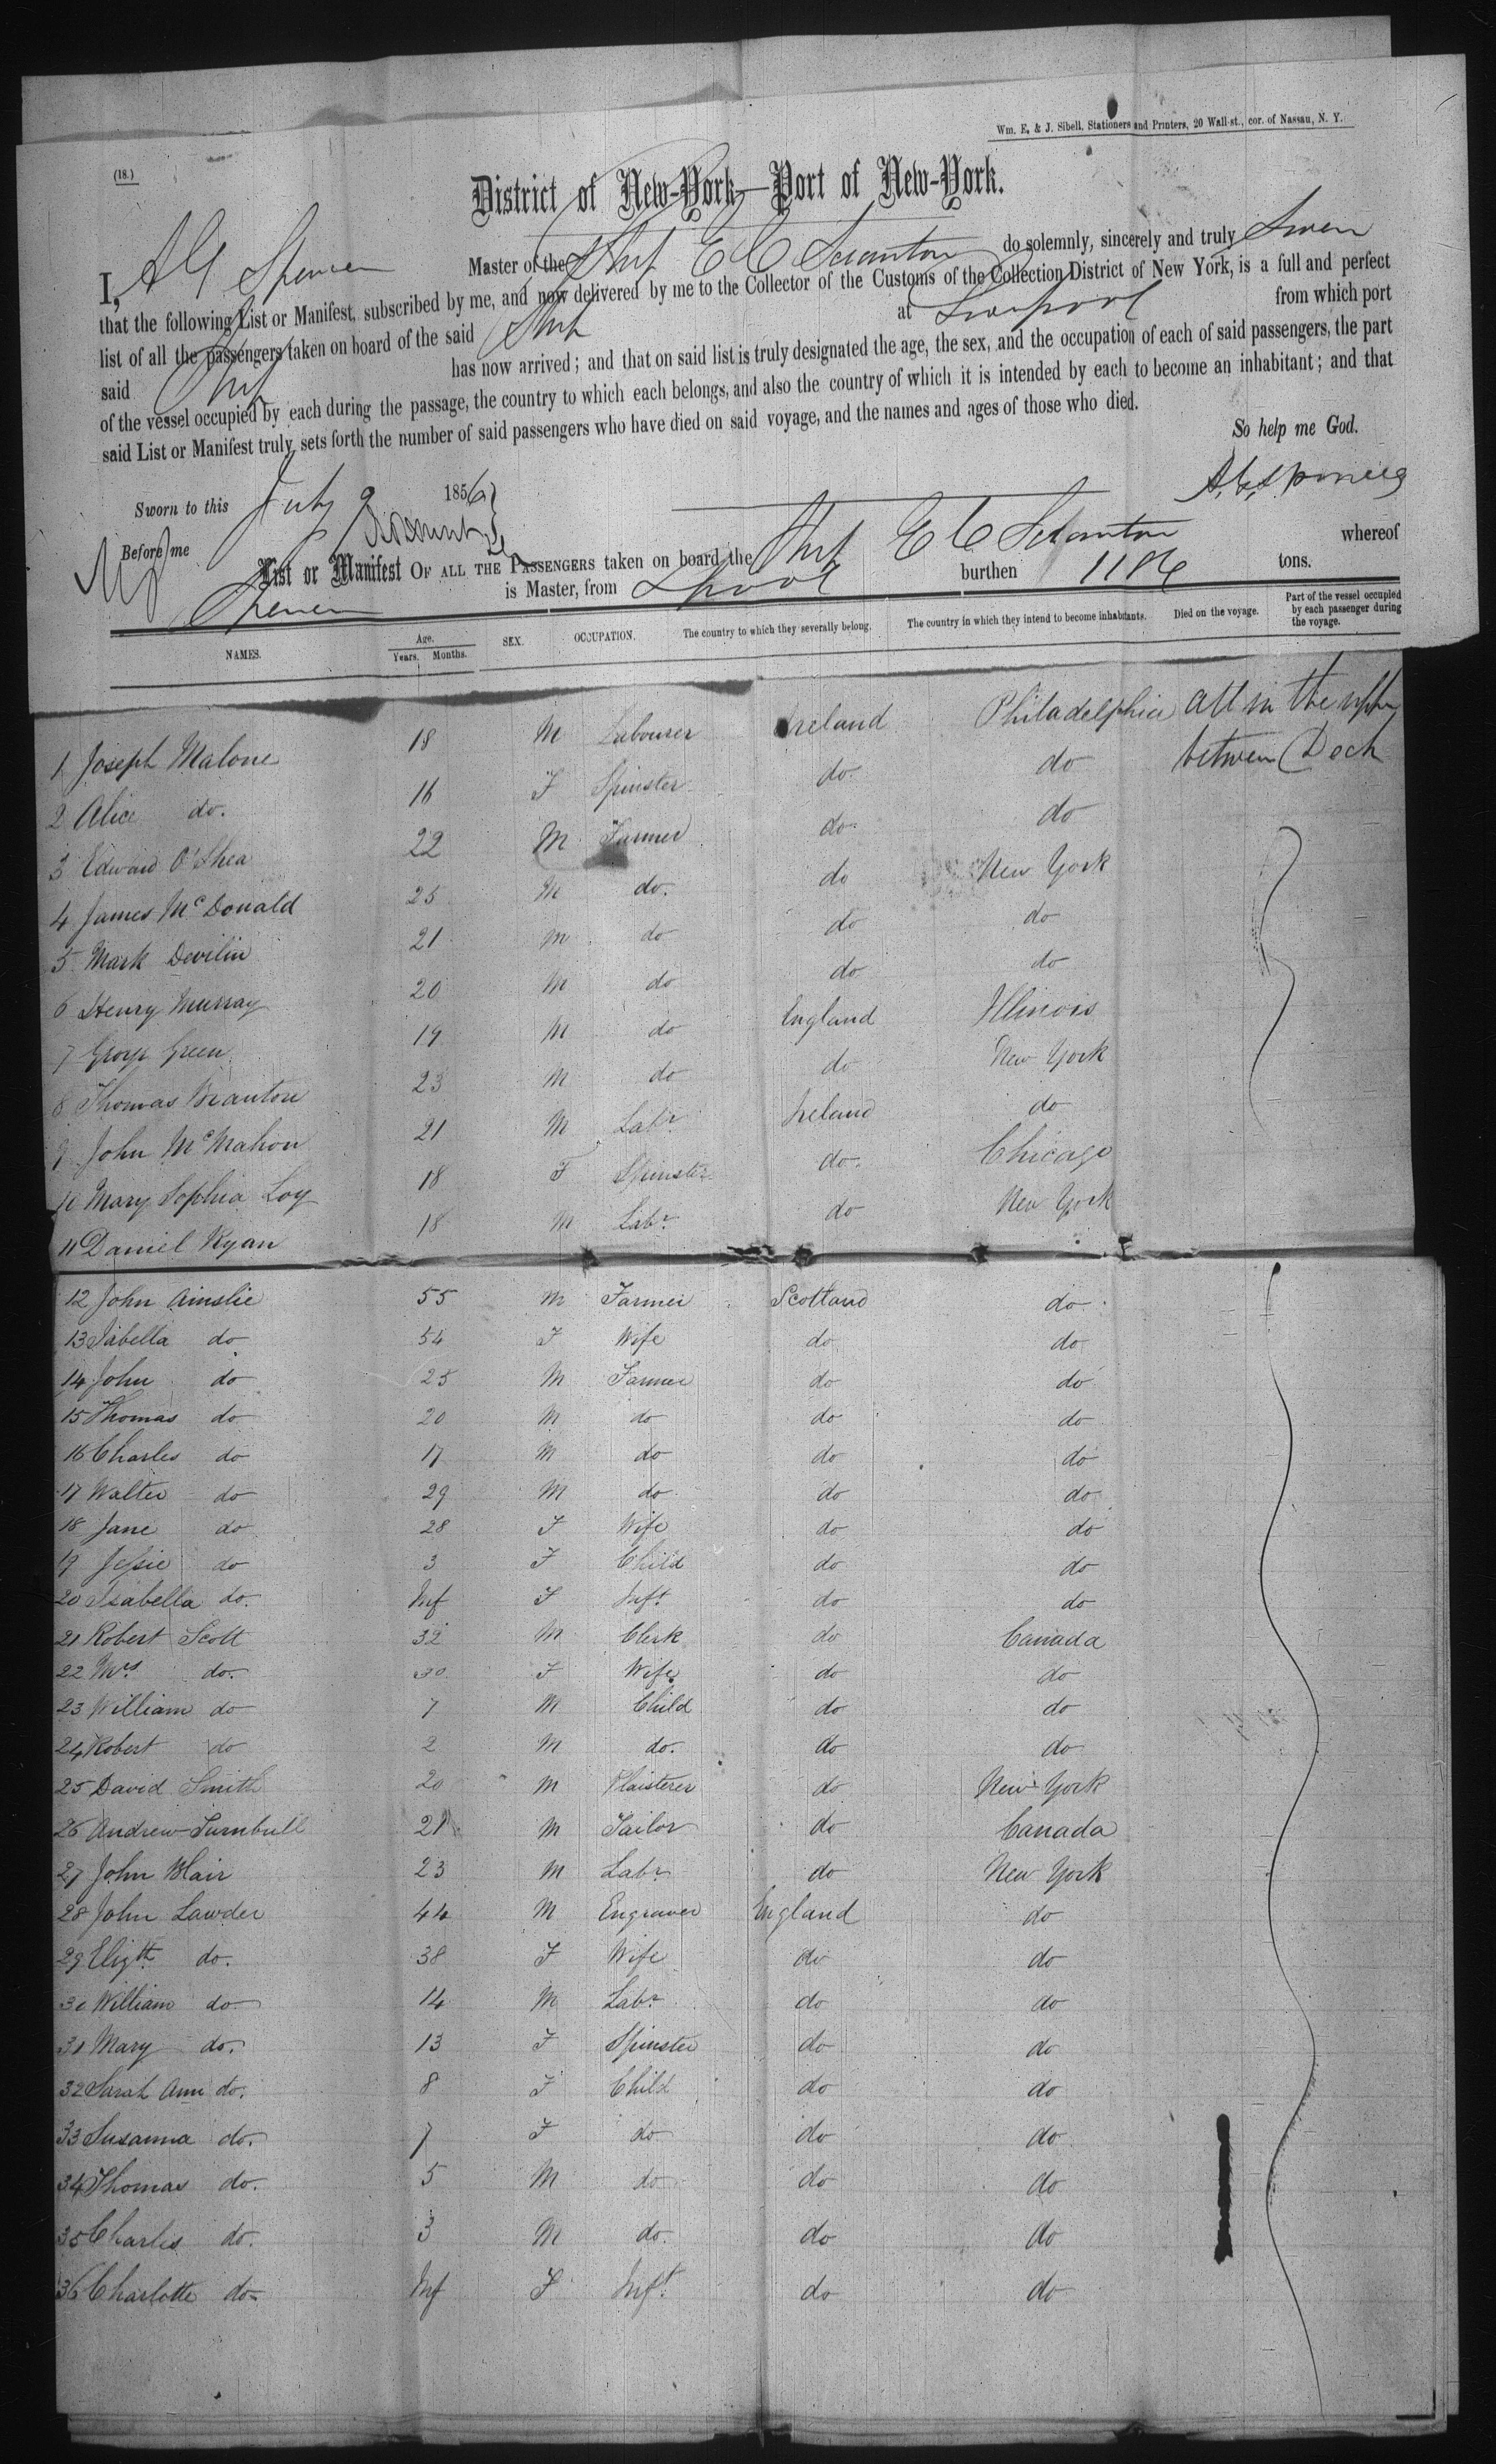 Wm. E. & J. Sibell, Stationers and Printers, 20 Wall-st., cor. of Nassau, N. Y.
(18.)
District of New-York—Port of New-York.
I, A G Spencer Master of the Ship E C Scranton do solemnly, sincerely and truly Swear
that the following List or Manifest, subscribed by me, and now delivered by me to the Collector of the Customs of the Collection District of New York, is a full and perfect
list of all the passengers taken on board of the said Ship at Liverpool from which port
said Ship has now arrived; and that on said list is truly designated the age, the sex, and the occupation of each of said passengers, the part
of the vessel occupied by each during the passage, the country to which each belongs, and also the country of which it is intended by each to become an inhabitant; and that
said List or Manifest truly sets forth the number of said passengers who have died on said voyage, and the names and ages of those who died.
So help me God.
Sworn to this July 9 1856
A. G. Spencer
Before me
List or Manifest OF ALL THE PASSENGERS taken on board the Ship E C Scranton whereof
Spencer is Master, from Lpool burthen 1186 tons.
NAMES. Age. Years. Months. SEX. OCCUPATION. The country to which they severally belong. The country in which they intend to become inhabitants. Died on the voyage. Part of the vessel occupied by each passenger during the voyage.
1 Joseph Malone 18 M Labourer Ireland Philadelphia All in the upper
2 Alice do. 16 F Spinster do. do between Deck
3 Edward O'Shea 22 M Farmer do. do
4 James McDonald 25 M do. do New York
5 Mark Devilin 21 M do do do
6 Henry Murray 20 M do do do
7 George Green 19 M do England Illinois
8 Thomas Branton 23 M do do New York
9 John McMahon 21 M Labr Ireland do
10 Mary Sophia Loy 18 F Spinster do. Chicago
11 Daniel Ryan 18 M Labr do New York
12 John Ainslie 55 M Farmer Scotland do.
13 Isabella do 54 F Wife do do
14 John do 25 M Farmer do do
15 Thomas do 20 M do do do
16 Charles do 17 M do do do
17 Walter do 29 M do do do
18 Jane do 28 F Wife do do
19 Jessie do 3 F Child do do
20 Isabella do. Inf F Inft do do
21 Robert Scott 32 M Clerk do Canada
22 Mrs do. 30 F Wife do do
23 William do 7 M Child do do
24 Robert do 2 M do. do do
25 David Smith 20 M Plaisterer do New York
26 Andrew Turnbull 21 M Tailor do Canada
27 John Blair 23 M Labr do New York
28 John Lawder 44 M Engraver England do
29 Elizth do. 38 F Wife do do
30 William do 14 M Labr do do
31 Mary do. 13 F Spinster do do
32 Sarah Ann do. 8 F Child do do
33 Susanna do. 7 F do do do
34 Thomas do. 5 M do do do
35 Charles do. 3 M do. do do
36 Charlotte do. Inf F Inft. do do